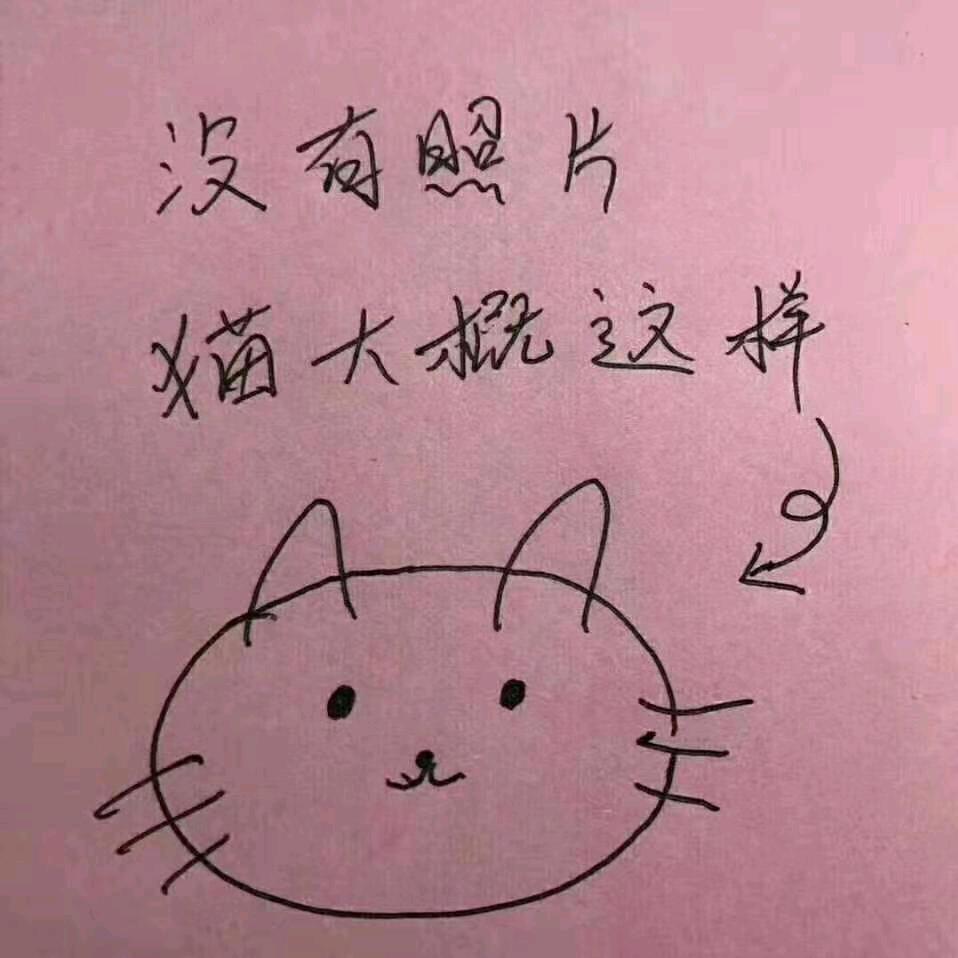 没有照片
猫大概这样